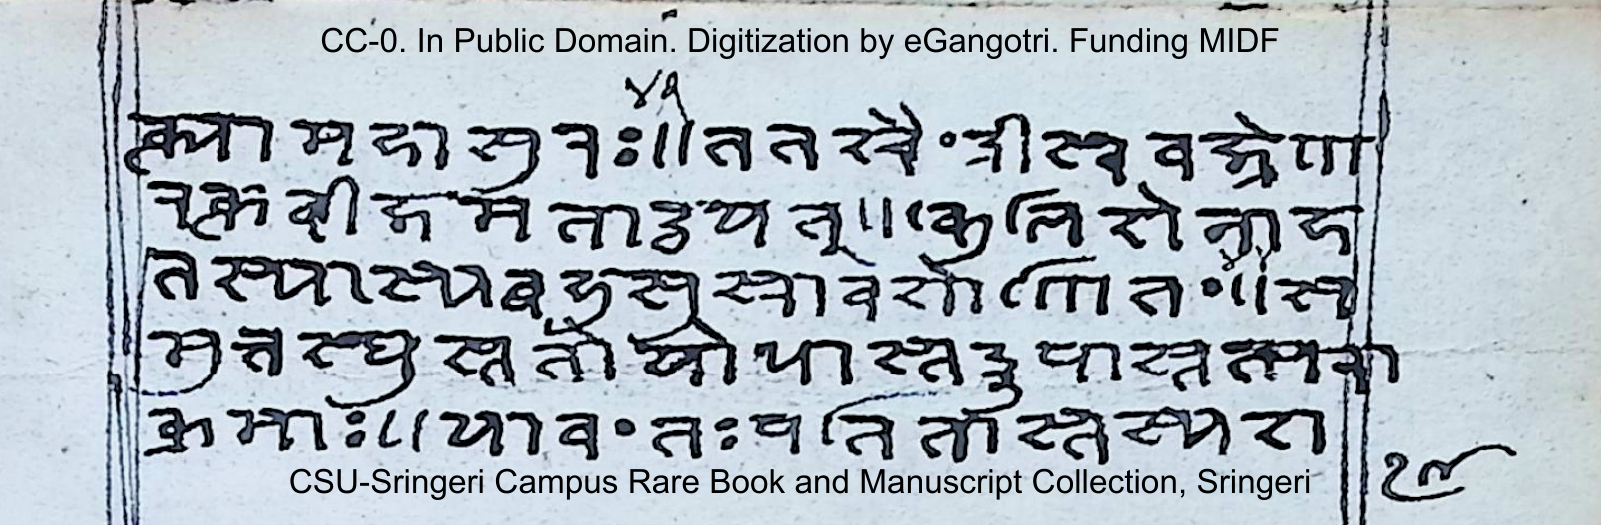 CC-0. In Public Domain. Digitization by eGangotri. Funding MIDF
४१
क्त्या महासुरः॥ ततस्त्वैंद्रीस्ववज्रेणा
रक्तबीजमताडयत्॥ कुलिशेनाह
तस्याशु बहु सुस्रावशोणितं॥ स
मुत्तस्थुस्ततो योधास्तद्रूपास्तत्परा
क्रमाः॥ यावंतःपतितास्तस्य श
CSU-Sringeri Campus Rare Book and Manuscript Collection, Sringeri